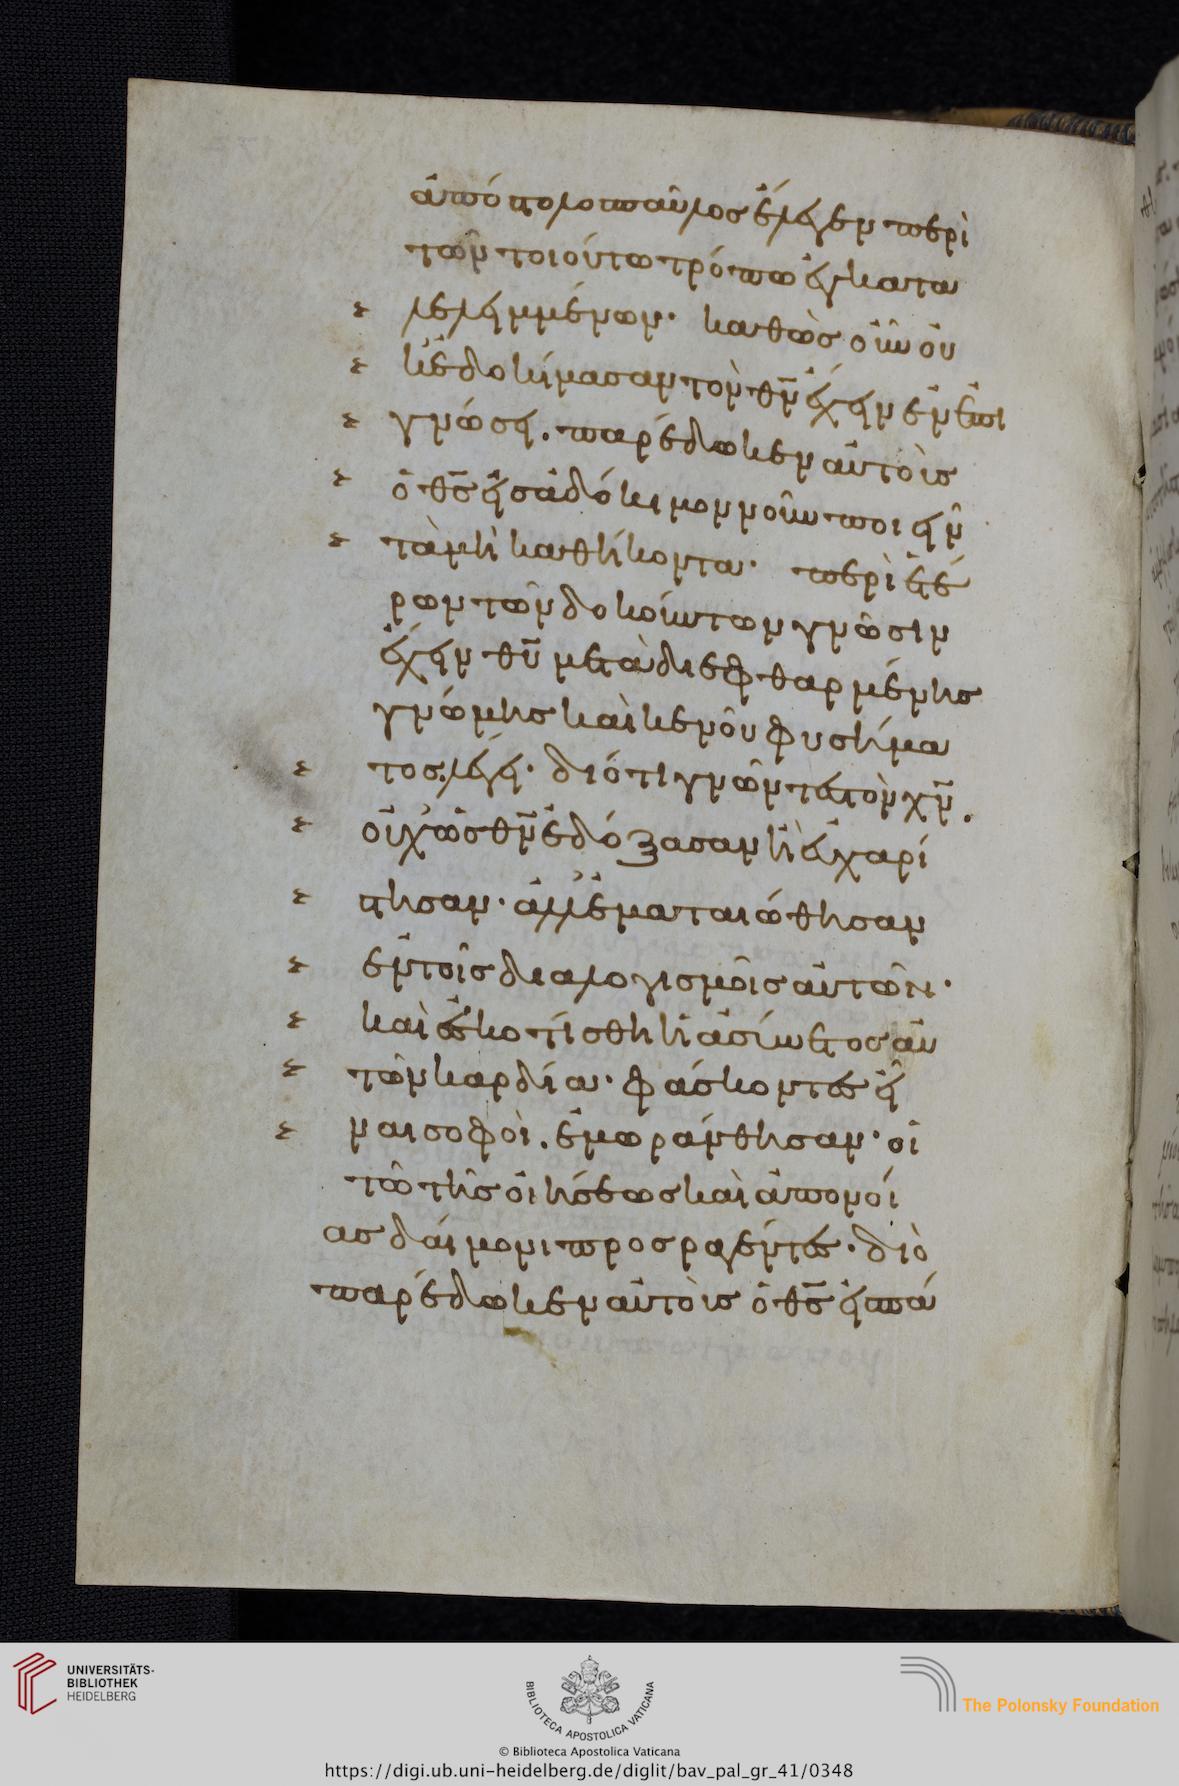 ἀπόστολο παῦλοσ ἔλεγεν περὶ
τῶν τοιούτω τρόπω ἐγκατα
λελειμμένων· καθὼσ οὖν οὐ
κ ἐδοκίμασαν τὸν θν ἔχειν ἐν ἐπι
γνώσει. παρέδωκεν αὐτοὺσ
ὁ θσ εἰσ ἀδόκιμον νοῦν ποιεῖν
τὰ μὴ καθήκοντα· περὶ ἑτέ
ρων τῶν δοκούντων γνῶσιν
ἔχειν θυ μετὰ διεφθαρμένησ
γνώμησ καὶ κενοῦ φυσήμα
τοσ. λέγει· διότι γνῶντεσ τὸν χν.
οὐχ ὡσ θν ἐδόξασαν ἢ εὐχαρί
στησαν· ἀλλ' ἐματαιώθησαν
ἐν τοῖσ διαλογισμοῖσ αὐτῶν·
καὶ ἐσκοτίσθη ἡ ἀσύνετοσ αὐ
τῶν καρδία· φάσκοντεσ εἶ
ναι σοφοὶ. ἐμωράνθησαν· οἱ
τῶ τῆσ οἰήσεωσ καὶ ἀπονοί
ασ δαίμονι προσραγέντεσ· διὸ
παρέδωκεν αὐτοὺσ ὁ θσ εἰσ πά
UNIVERSITÄTS-
BIBLIOTHEK
HEIDELBERG
BIBLIOTECA APOSTOLICA VATICANA
The Polonsky Foundation
© Biblioteca Apostolica Vaticana
https://digi.ub.uni-heidelberg.de/diglit/bav_pal_gr_41/0348